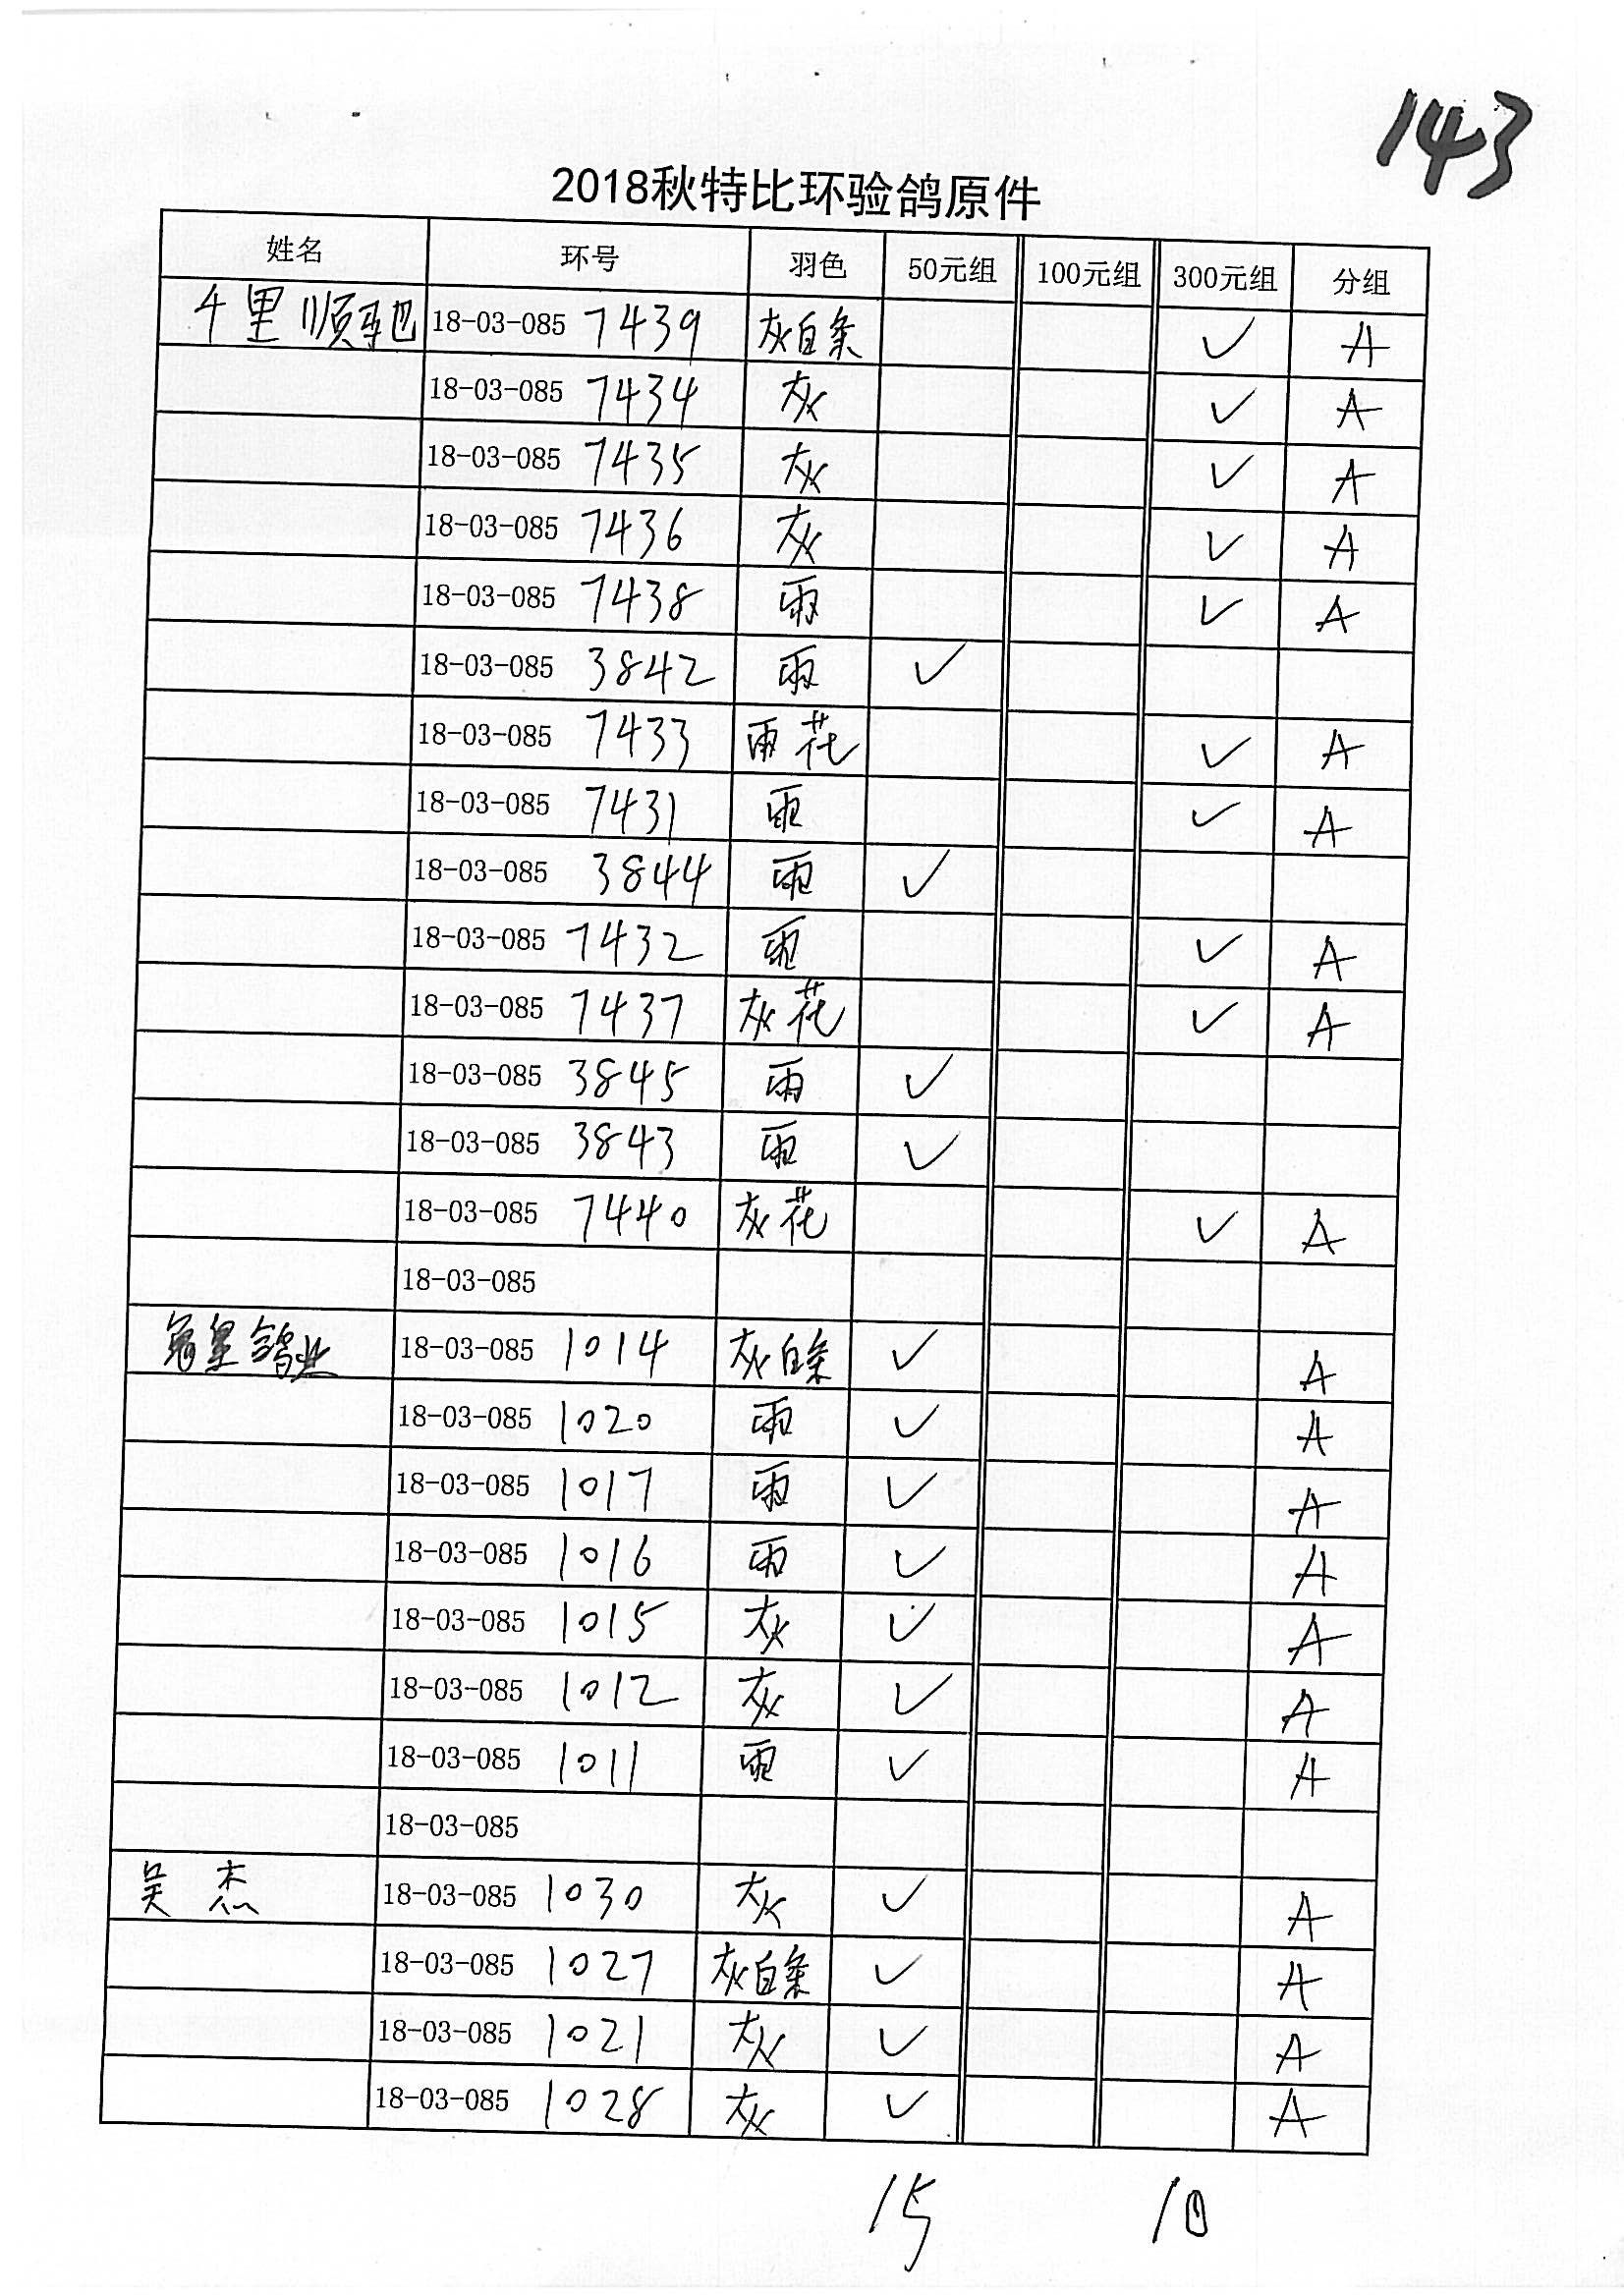 143
2018秋特比环验鸽原件
姓名 环号 羽色 50元组 100元组 300元组 分组
千里顺驰 18-03-085 7439 灰白条 ✓ A
18-03-085 7434 灰 ✓ A
18-03-085 7435 灰 ✓ A
18-03-085 7436 灰 ✓ A
18-03-085 7438 雨 ✓ A
18-03-085 3842 雨 ✓
18-03-085 7433 雨花 ✓ A
18-03-085 7431 雨 ✓ A
18-03-085 3844 雨 ✓
18-03-085 7432 雨 ✓ A
18-03-085 7437 灰花 ✓ A
18-03-085 3845 雨 ✓
18-03-085 3843 雨 ✓
18-03-085 7440 灰花 ✓ A
18-03-085
冠皇鸽业 18-03-085 1014 灰白条 ✓ A
18-03-085 1020 雨 ✓ A
18-03-085 1017 雨 ✓ A
18-03-085 1016 雨 ✓ A
18-03-085 1015 灰 ✓ A
18-03-085 1012 灰 ✓ A
18-03-085 1011 雨 ✓ A
18-03-085
吴杰 18-03-085 1030 灰 ✓ A
18-03-085 1027 灰白条 ✓ A
18-03-085 1021 灰 ✓ A
18-03-085 1028 灰 ✓ A
15 10